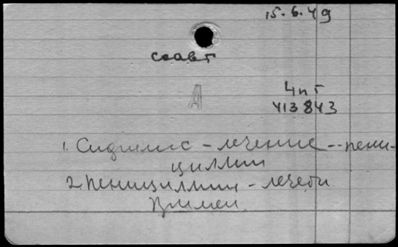 15.6.49
соавт
А
4пт
413843
1. Сифилис - лечение - пени-
циллин
2. Пенициллин - лечебн
Примен.